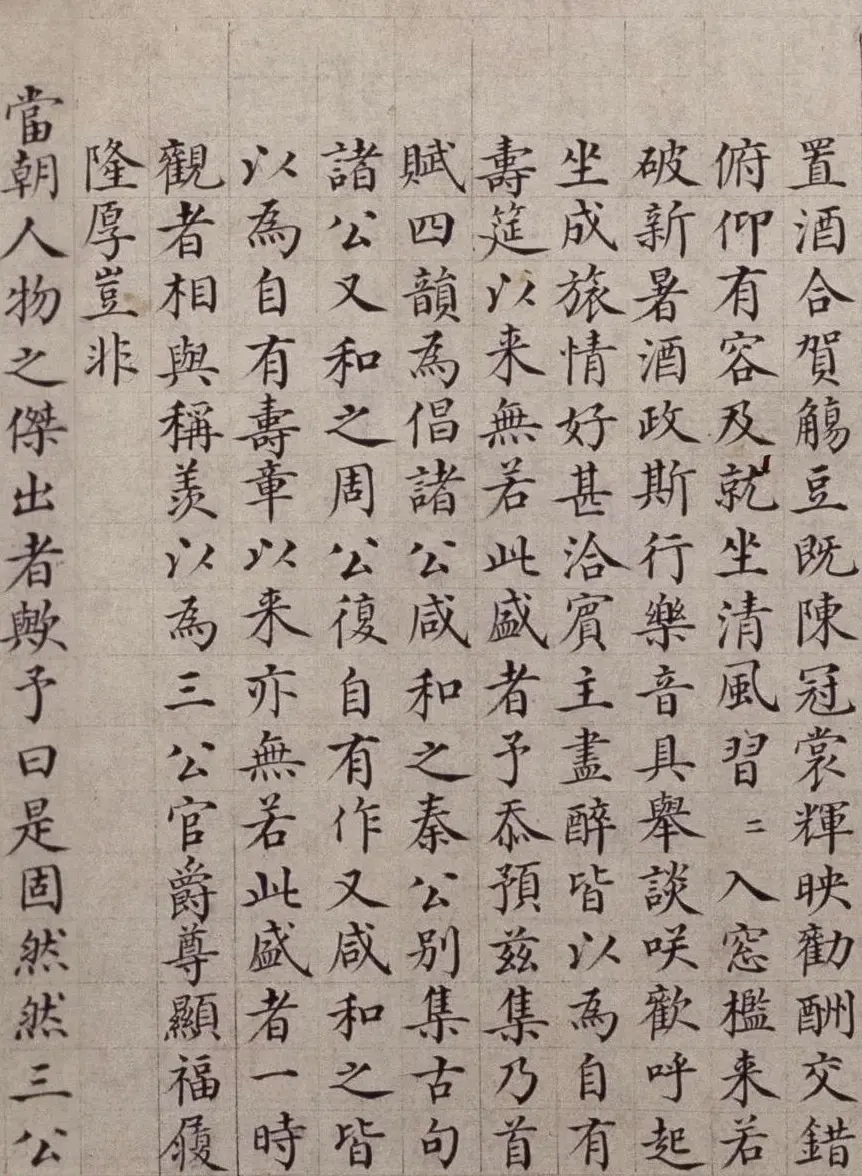 置酒合賀觴豆既陳冠裳輝映勸酬交錯
俯仰有容及就坐清風習〻入窓檻来若
破新暑酒政斯行樂音具舉談咲歡呼起
坐成旅情好甚洽賓主盡醉皆以為自有
壽筵以来無若此盛者予忝預兹集乃首
賦四韻為倡諸公咸和之秦公别集古句
諸公又和之周公復自有作又咸和之皆
以為自有壽章以来亦無若此盛者一時
觀者相與稱羨以為三公官爵尊顯福履
隆厚豈非
當朝人物之傑出者歟予曰是固然然三公